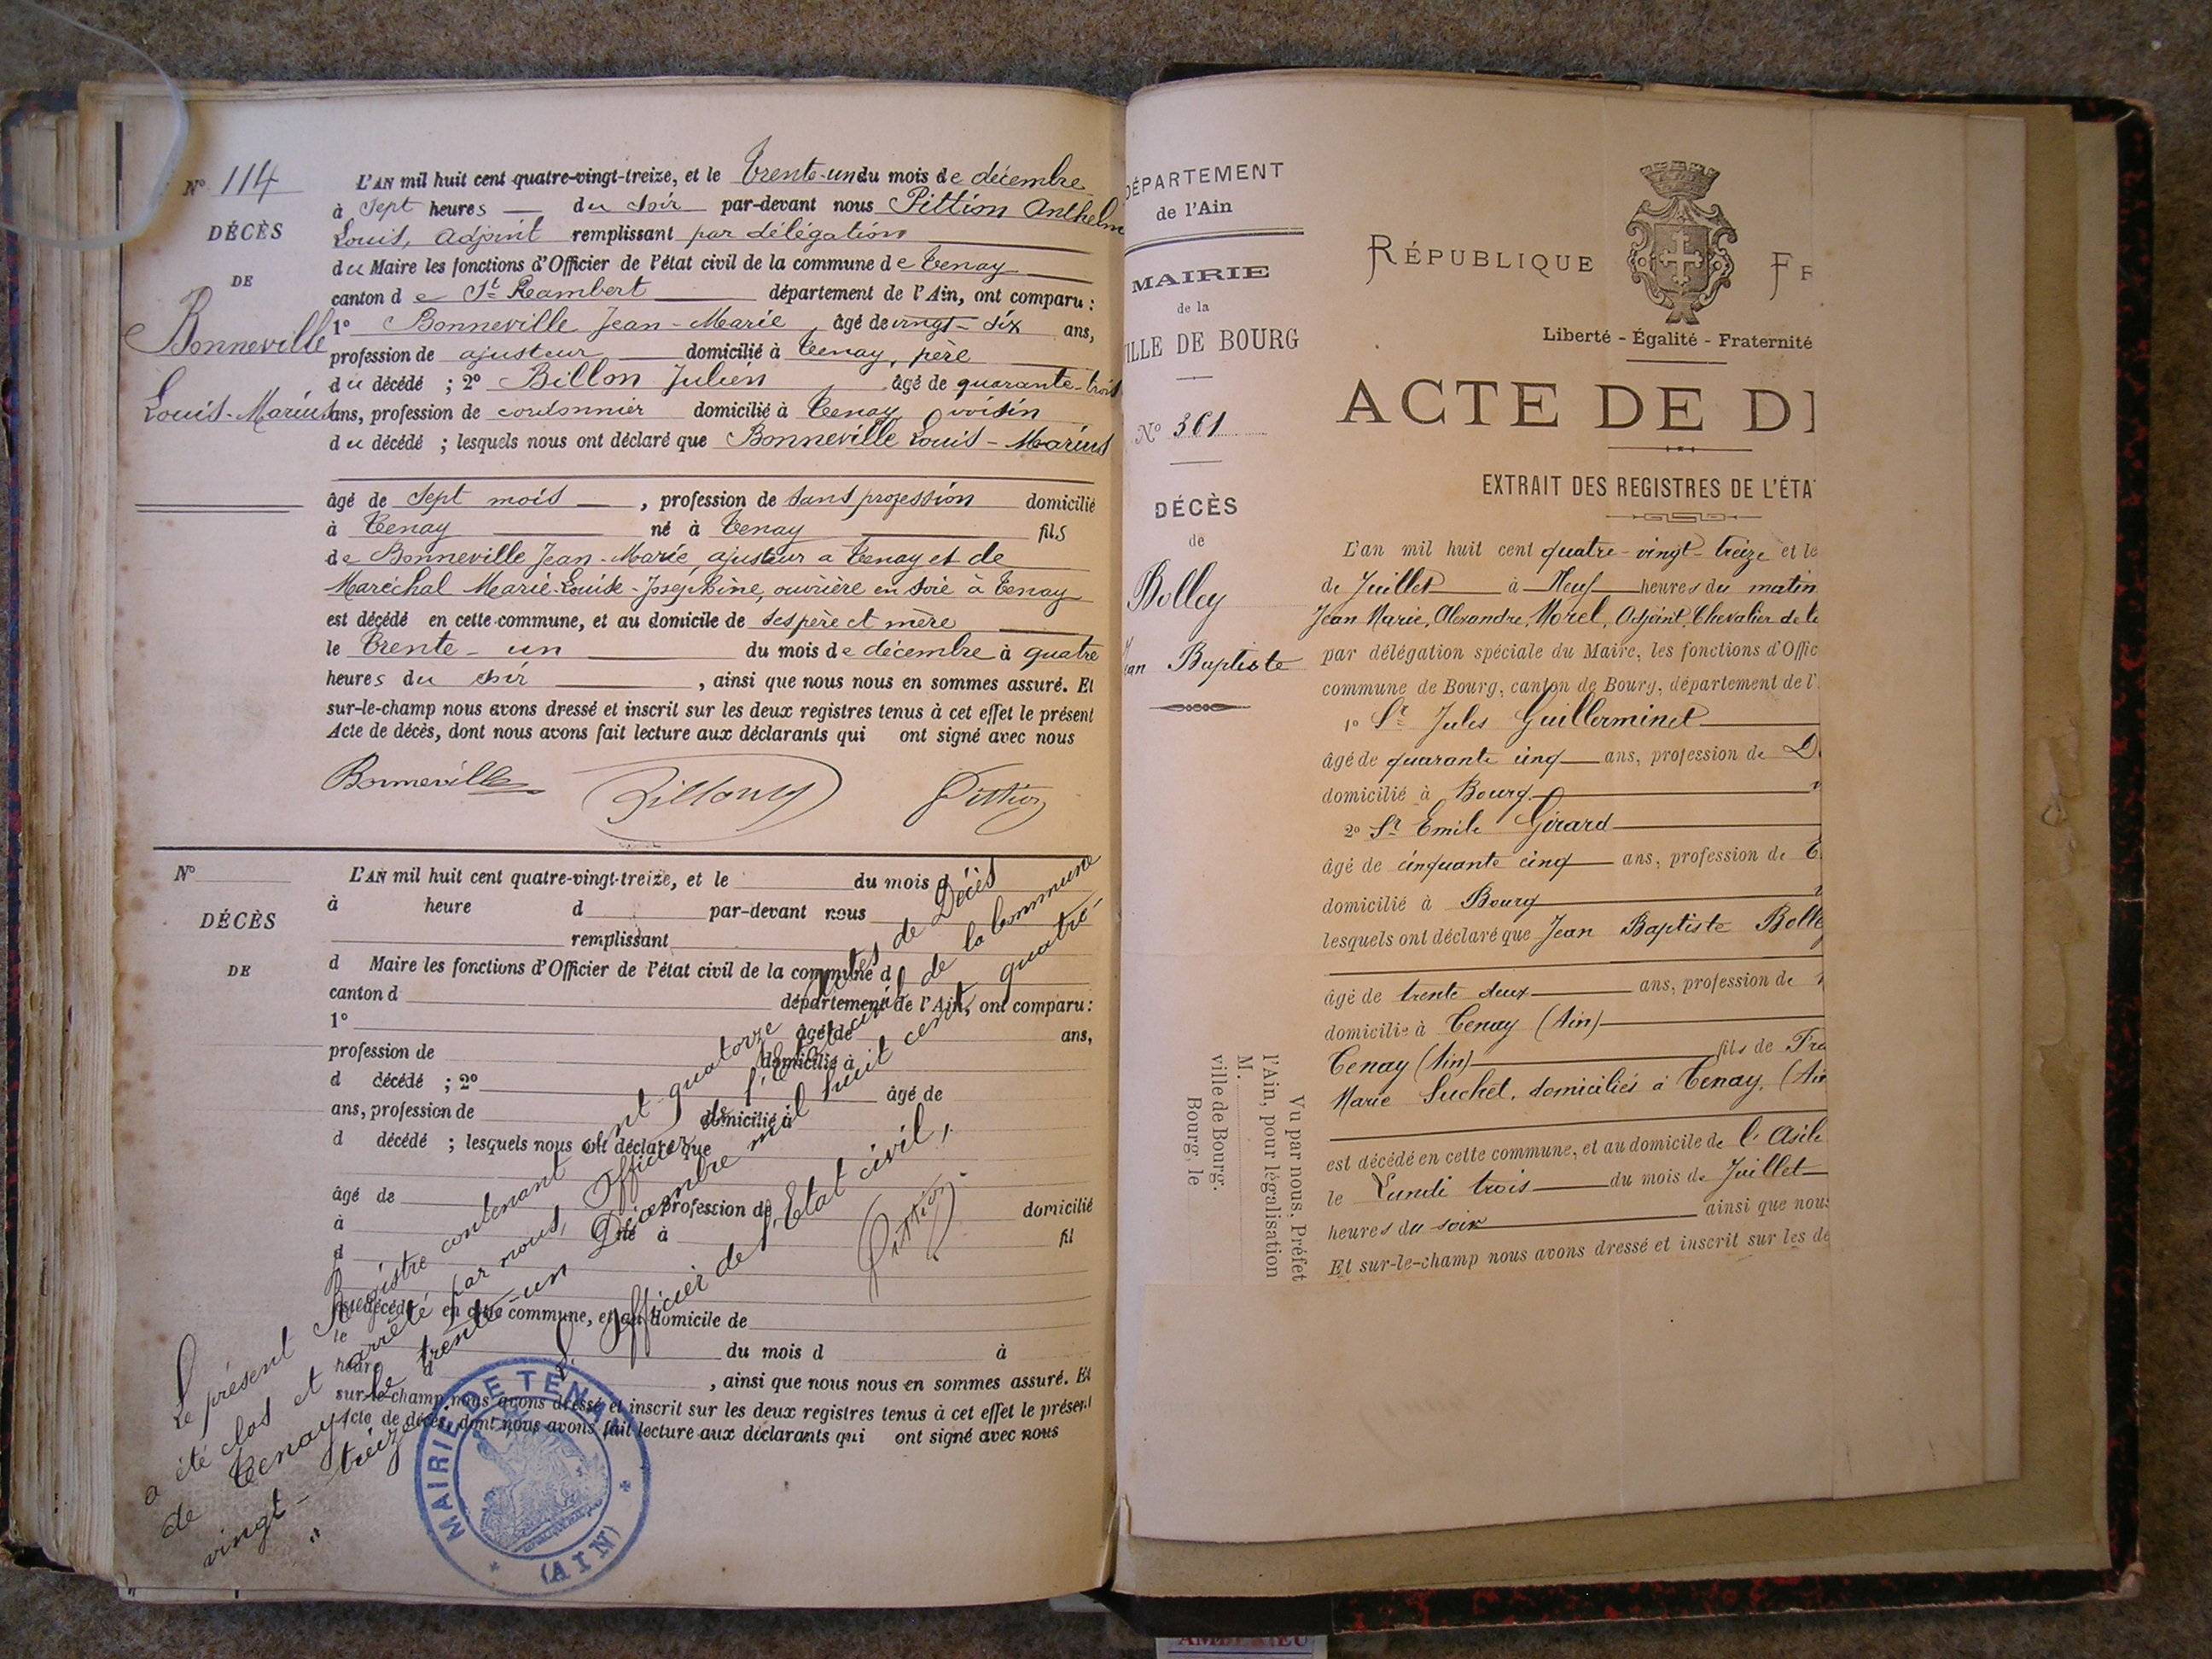 N° 114
DÉCÈS
DE
Bonneville
Louis-Marius
L'AN mil huit cent quatre-vingt-treize, et le trente-un du mois de décembre
à Sept heures du soir par-devant nous Pittion Anthelm
Louis, Adjoint remplissant par délégation
du Maire les fonctions d'Officier de l'état civil de la commune de Tenay
canton de St Rambert département de l'Ain, ont comparu :
1° Bonneville Jean-Marie, âgé de vingt-six ans,
profession de ajusteur domicilié à Tenay, père
du décédé ; 2° Billon Julien âgé de quarante-trois
ans, profession de cordonnier domicilié à Tenay, voisin
du décédé ; lesquels nous ont déclaré que Bonneville Louis-Marius
âgé de Sept mois, profession de sans profession domicilié
à Tenay né à Tenay fils
de Bonneville Jean-Marie, ajusteur a Tenay et de
Maréchal Marie-Louise-Joséphine, ouvrière en soie à Tenay
est décédé en cette commune, et au domicile de ses père et mère
le trente-un du mois de décembre à quatre
heures du soir, ainsi que nous nous en sommes assuré. Et
sur-le-champ nous avons dressé et inscrit sur les deux registres tenus à cet effet le présent
Acte de décès, dont nous avons fait lecture aux déclarants qui ont signé avec nous
Bonneville Pittion
N°
DÉCÈS
DE
L'AN mil huit cent quatre-vingt-treize, et le du mois d
à heure d par-devant nous
remplissant
d Maire les fonctions d'Officier de l'état civil de la commune d
canton d département de l'Ain, ont comparu :
1° âgé de ans,
profession de domicilié à
d décédé ; 2° âgé de
ans, profession de domicilié à
d décédé ; lesquels nous ont déclaré que
âgé de profession de domicilié
à né à fil
d
est décédé en cette commune, et au domicile de
le du mois d à
heure d , ainsi que nous nous en sommes assuré. Et
sur-le-champ nous avons dressé et inscrit sur les deux registres tenus à cet effet le présent
Acte de décès, dont nous avons fait lecture aux déclarants qui ont signé avec nous
Le présent Registre contenant cent quatorze actes de Décès
a été clos et arrêté par nous, Officier de l'Etat civil de la Commune
de Tenay, le trente-un Décembre mil huit cent quatre
vingt-treize "
L'Officier de l'Etat civil,
Pittion
MAIRIE DE TENAY
(AIN)
DÉPARTEMENT
de l'Ain
MAIRIE
de la
VILLE DE BOURG
N° 361
DÉCÈS
de
Bolley
an Baptiste
Vu par nous, Préfet
l'Ain, pour légalisation
M.
ville de Bourg.
Bourg, le
RÉPUBLIQUE FR
Liberté - Égalité - Fraternité
ACTE DE D
EXTRAIT DES REGISTRES DE L'ÉTA
L'an mil huit cent quatre-vingt-treize et le
de Juillet à Neuf heures du matin
Jean Marie, Alexandre, Morel, Adjoint, Chevalier de l
par délégation spéciale du Maire, les fonctions d'Offic
commune de Bourg, canton de Bourg, département de l'
1° Sr Jules Guillerminet
âgé de quarante cinq ans, profession de D
domicilié à Bourg
2° Sr Emile Girard
âgé de cinquante cinq ans, profession de E
domicilié à Bourg
lesquels ont déclaré que Jean Baptiste Bolle
âgé de trente deux ans, profession de
domicilié à Tenay (Ain)
Tenay (Ain) fils de Fra
Marie Suchet, domiciliés à Tenay, (Ain
est décédé en cette commune, et au domicile de l'Asile
le Lundi trois du mois de Juillet
heures du soir ainsi que nous
Et sur-le-champ nous avons dressé et inscrit sur les de